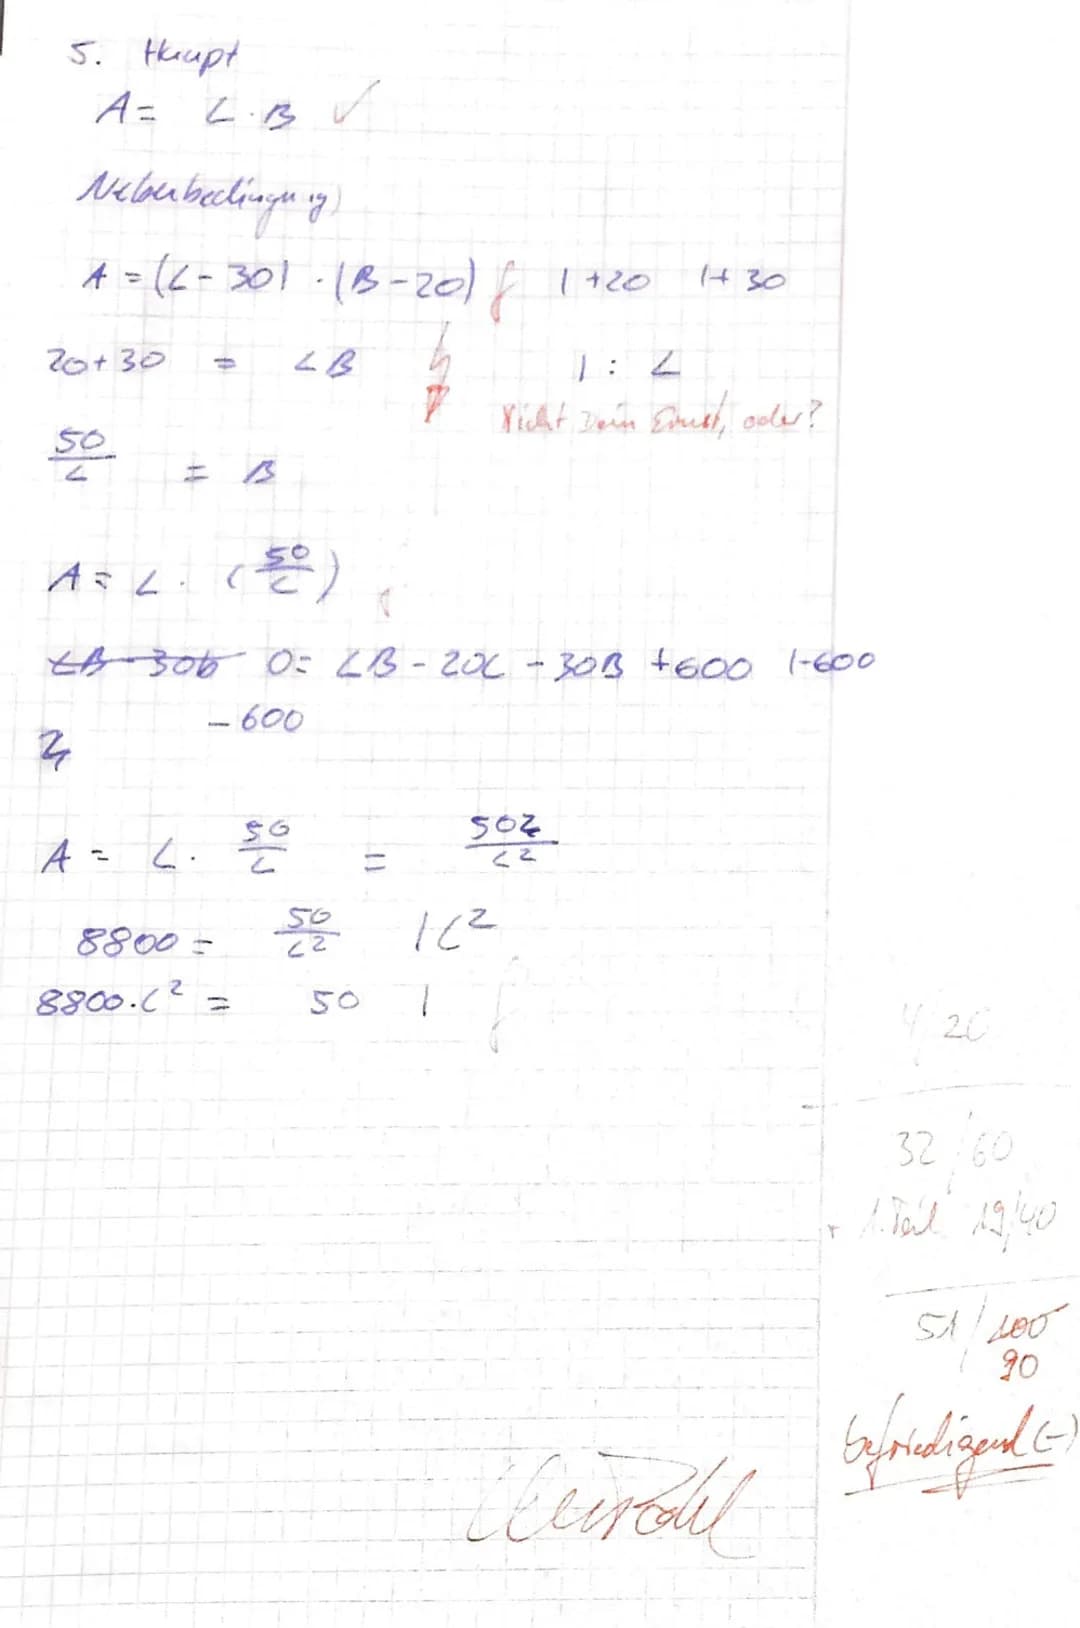 5. Haupt
A = L · B ✓
Nebenbedingung
A = (L - 30) · (B - 20) f | +20 | + 30
20 + 30 = LB | : L
Nicht Dein Ernst, oder?
50/L = B
A = L · (50/L)
LB - 30b 0 = LB - 20L - 30B + 600 | -600
- 600
A = L · 50/L = 50L/L²
8800 = 50/L² | L²
8800 · L² = 50 | f
4/20
32/60
+ 1. Teil 19/40
51/100
90
befriedigend (-)